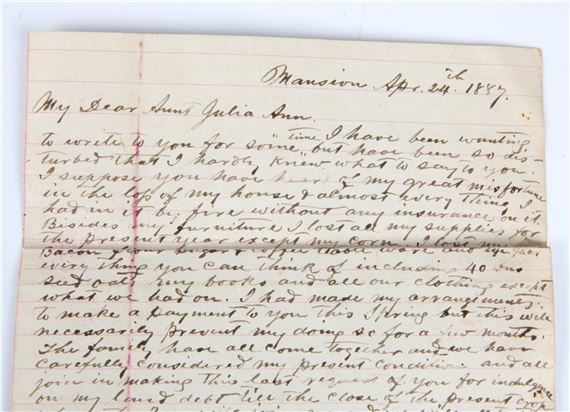 Mansion Apr. 24th 1887.
My Dear Aunt Julia Ann.
time I have been wanting
to write to you for some but have been so dis-
turbed that I hardly knew what to say to you.
I suppose you have heard of my great misfortune
in the loss of my house & almost every thing I
had in it by fire without any insurance on it
Besides my furniture I lost all my supplies for
the present year except my corn. I lost my
Bacon flour sugar & coffee
every thing you can think of including 40 bus
seed oats my books and all our clothing except
what we had on. I had made my arrangements
to make a payment to you this Spring but this will
necessarily prevent my doing so for a few months.
The family have all come together and we have
carefully considered my present condition and all
join in making this last request of you for indulgence
on my land debt till the close of the present crop